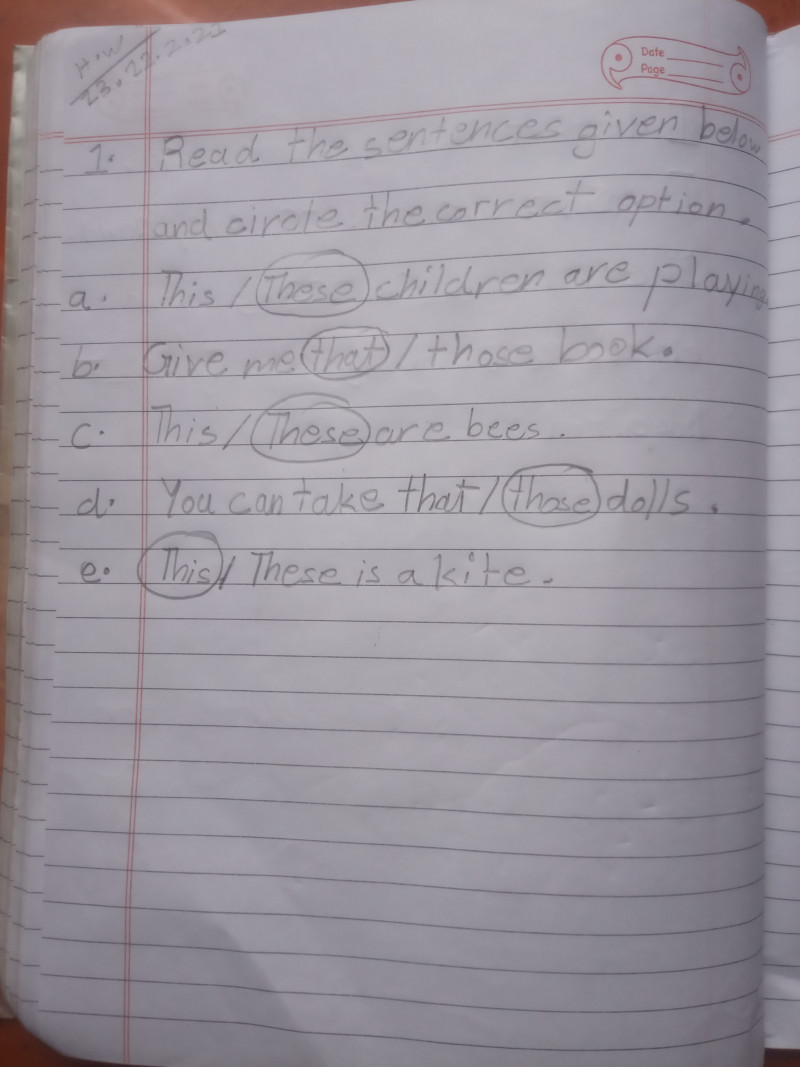 H.W
Date
Page
1. Read the sentences given below
and circle the correct option.
a. This / These children are playing
b. Give me that / those book.
c. This / These are bees.
d. You can take that / those dolls.
e. This / These is a kite.